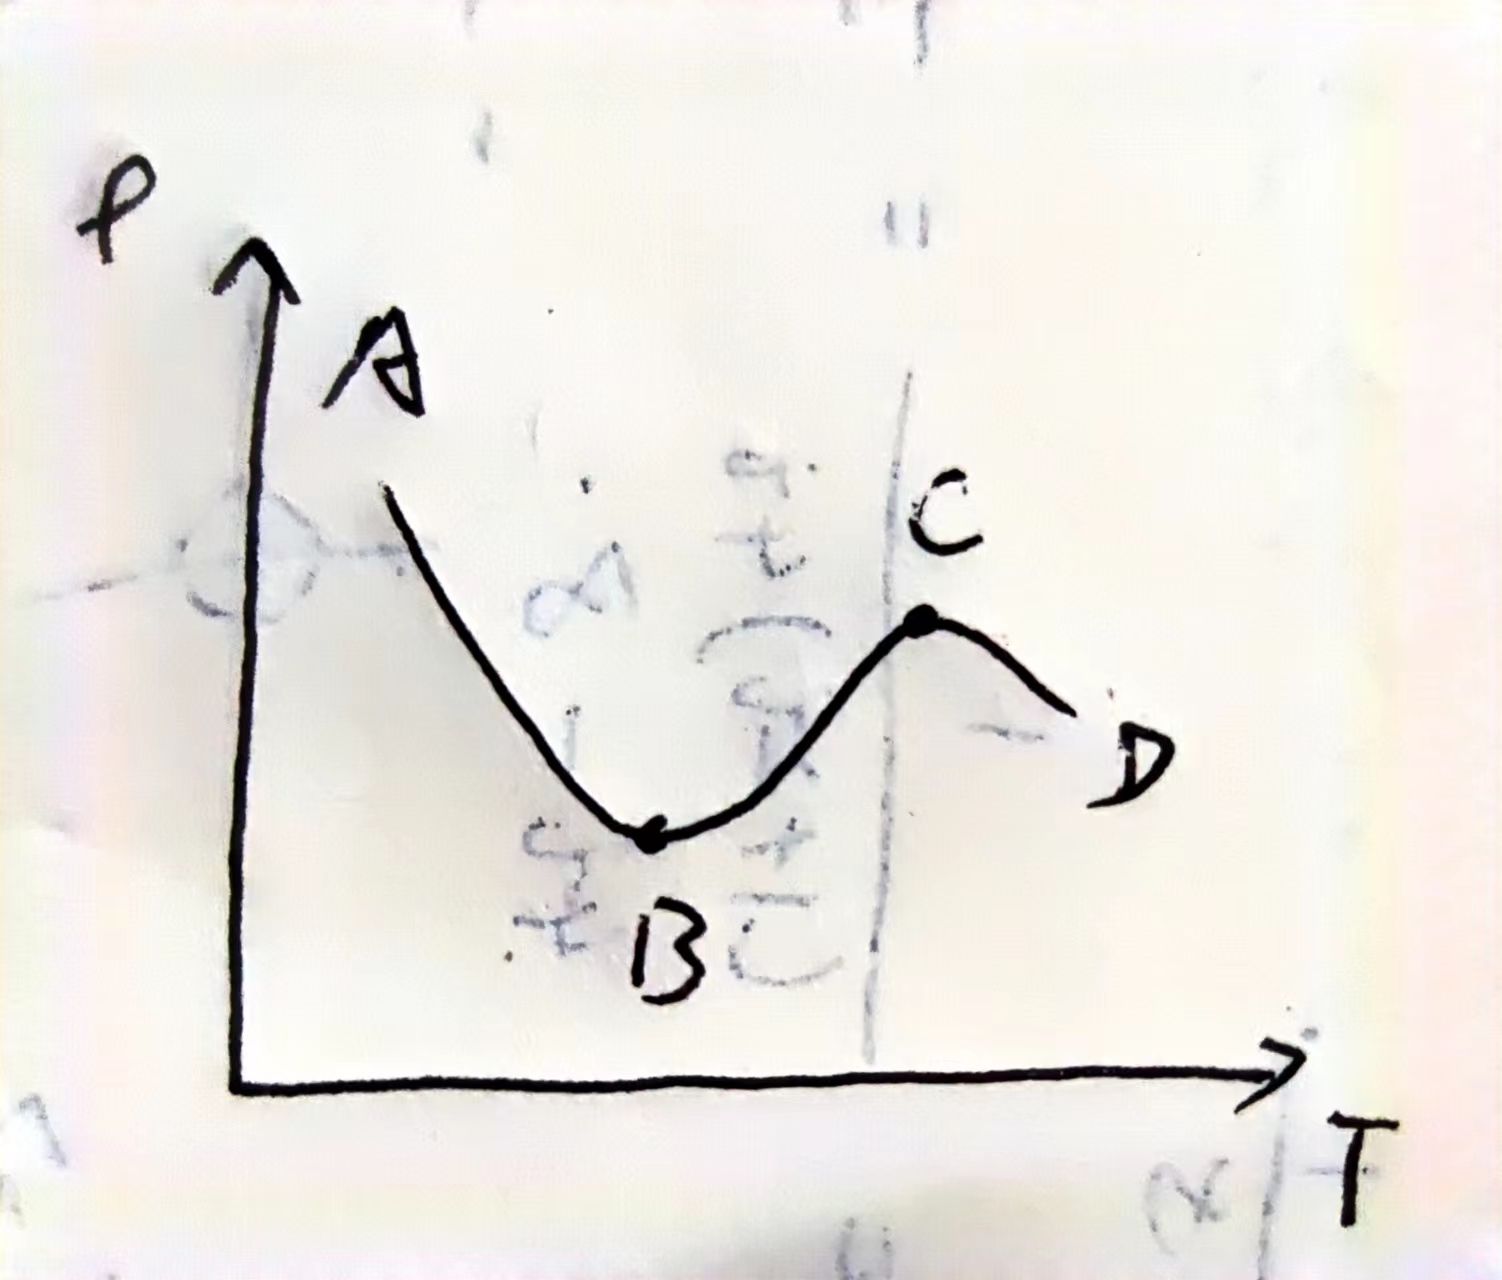 P
A
C
D
B
T